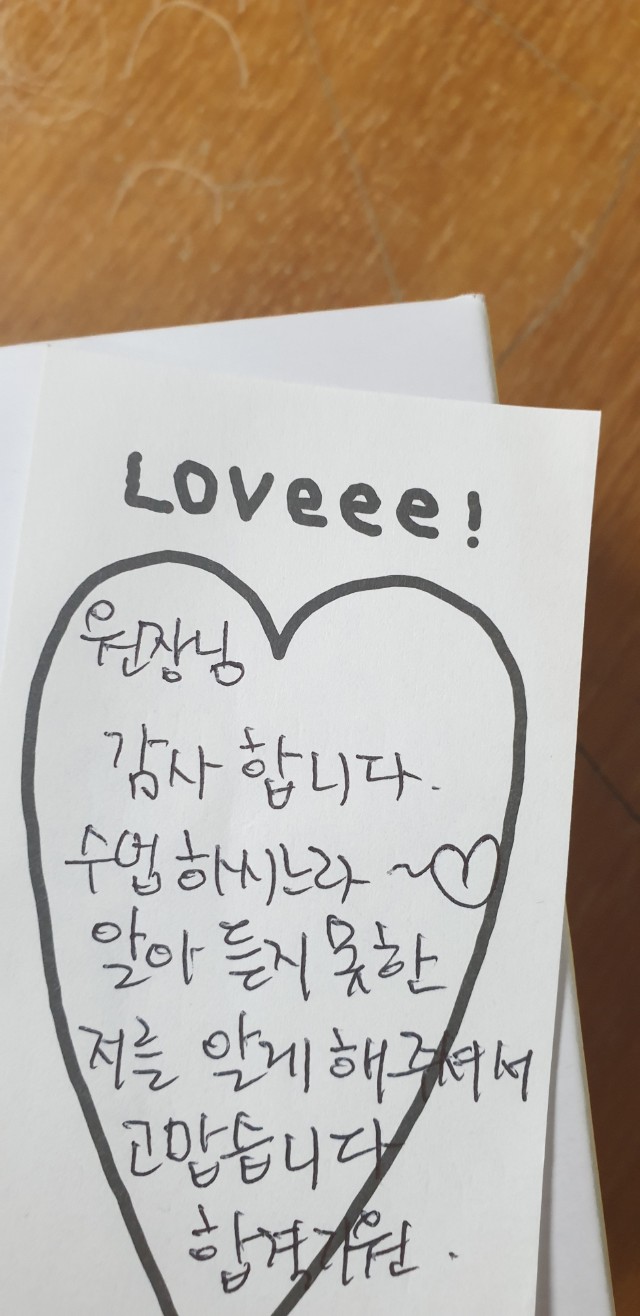 Loveee!
원장님
감사 합니다.
수업 하시느라 ~♡
알아 듣지 못한
저를 알게 해주셔서
고맙습니다
합격기원.